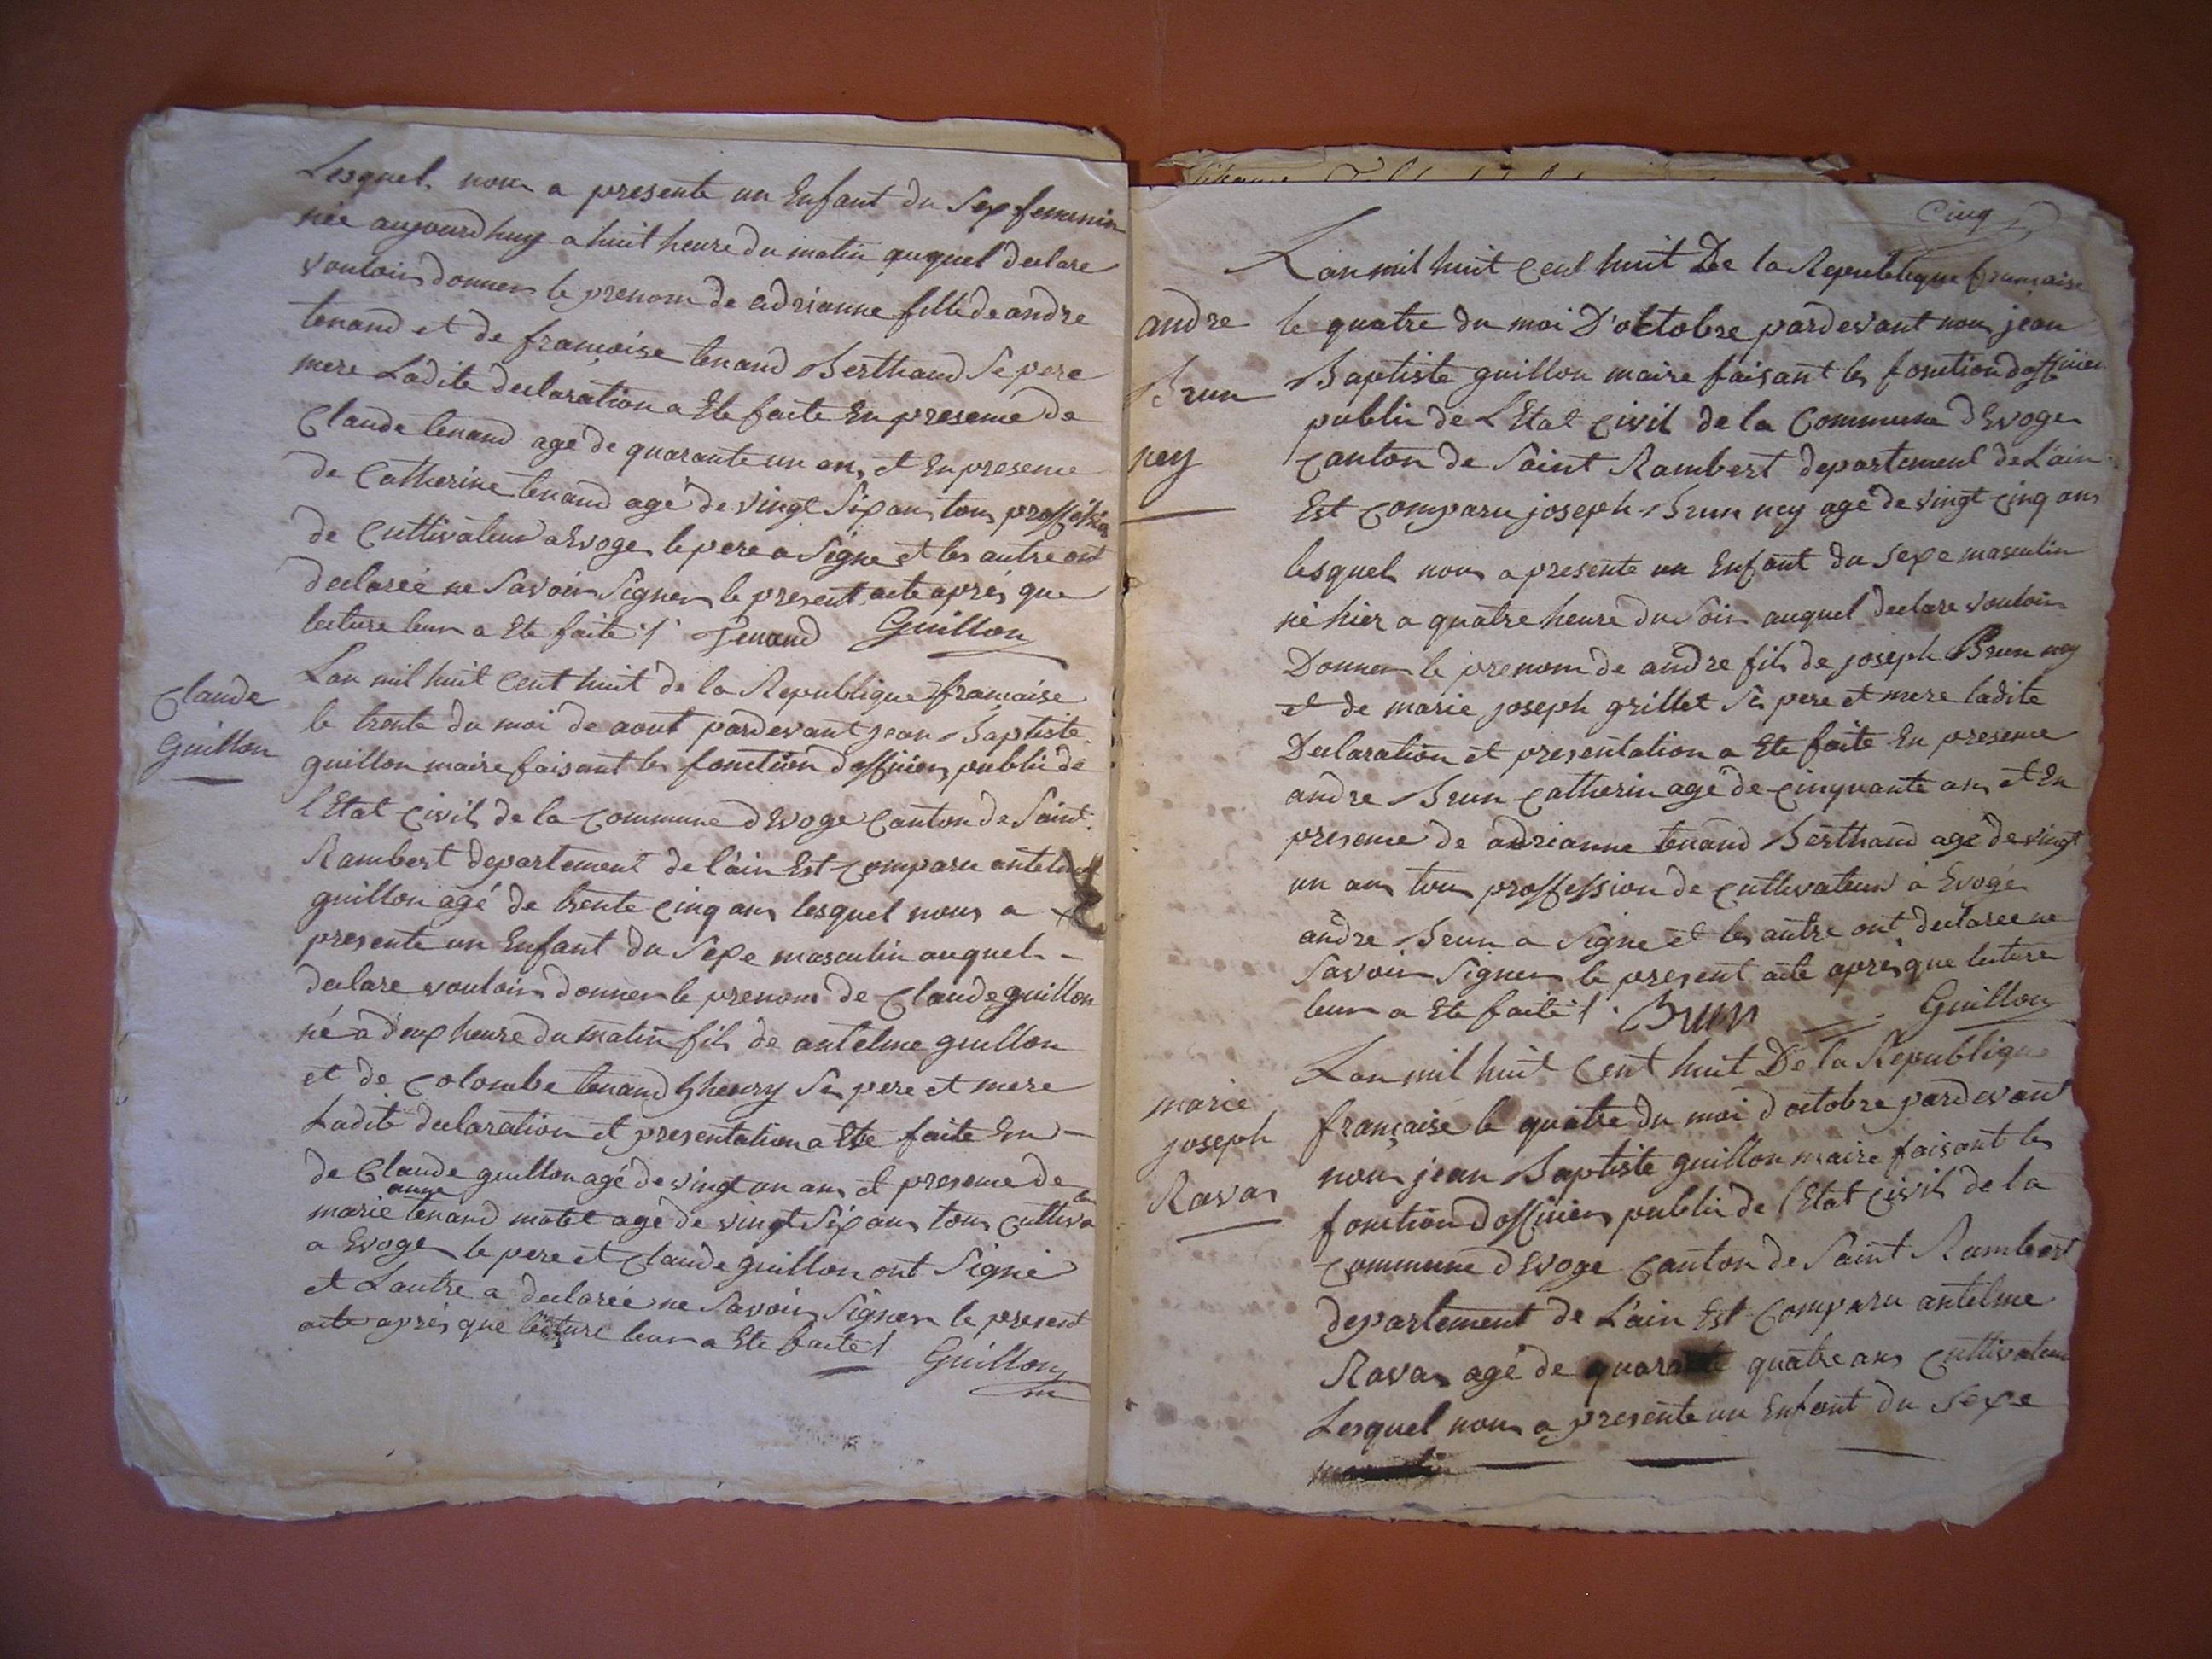 Lesquel nous a presente un Enfant du Sexe feminin
née aujourdhuy a huit heure du matin auquel declare
vouloir donner le prenom de adrianne fille de andre
tenand et de françoise tenand Berthand Se pere
mere Ladite declaration a Ete faite En presence de
Claude tenand agé de quarante un ans et En presence
de Catherine tenand agé de vingt Six ans tous proffession
de Cultivateur a Evoge le pere a Signe et les autre ont
declareé ne Savoir Signer le present acte aprés que
lecture leur a Ete faite /. Tenand Guillon
Claude
Guillon
Lan mil huit Cent huit de la Republique française
le trente du moi de aout pardevant jean Baptiste
guillon maire faisant les fonction dofficier public de
l'Etat Civil de la Commune dEvoge Canton de Saint
Rambert departement de l'ain Est Comparu antelme
guillon agé de trente Cinq ans lesquel nous a
presente un Enfant du Sexe masculin auquel -
declare vouloir donner le prenom de Claude guillon
né a deux heure du matin fils de antelme guillon
et de Colombe tenand Ghenry Ses pere et mere
Ladite declaration et presentation a Ete faite En -
de Claude guillon agé de vingt un ans et presence de
anne
marie tenand matel agé de vingt Six ans tous Cultivateur
a Evoge le pere et Claude guillon ont Signé
et Lautre a declareé ne Savoir Signer le present
acte aprés que lecture leur a Ete faite /
Guillon
Cinq
Lan mil huit Cent huit De la Republique française
andre
Brun
ney
le quatre du moi D'octobre pardevant nous jean
Baptiste guillon maire faisant les fonction dofficier
public de L'Etat Civil de la Commune dEvoge
Canton de Saint Rambert departement de L'ain
Est Comparu joseph Brun ney agé de vingt Cinq ans
lesquel nous a presente un Enfant du Sexe masculin
né hier a quatre heure du Soir auquel declare vouloir
Donner le prenom de andre fils de joseph Brun ney
et de marie joseph grillet Ses pere et mere ladite
Declaration et presentation a Ete faite En presence
andre Brun Catherin agé de Cinquante ans et En
presence de adrianne tenand Berthand agé de vingt
un ans tous proffession de Cultivateur a Evoge
andre Brun a Signe et les autre ont declareé ne
Savoir Signer le present acte aprés que lecture
leur a Ete faite /. Brun Guillon
marie
joseph
Ravas
Lan mil huit Cent huit De la Republique
française le quatre du moi doctobre pardevant
nous jean Baptiste guillon maire faisant les
fonction dofficier public de l'Etat Civil de la
Commune dEvoge Canton de Saint Rambert
departement de L'ain Est Comparu antelme
Ravas agé de quarante quatre ans Cultivateur
Lesquel nous a presente un Enfant du Sexe